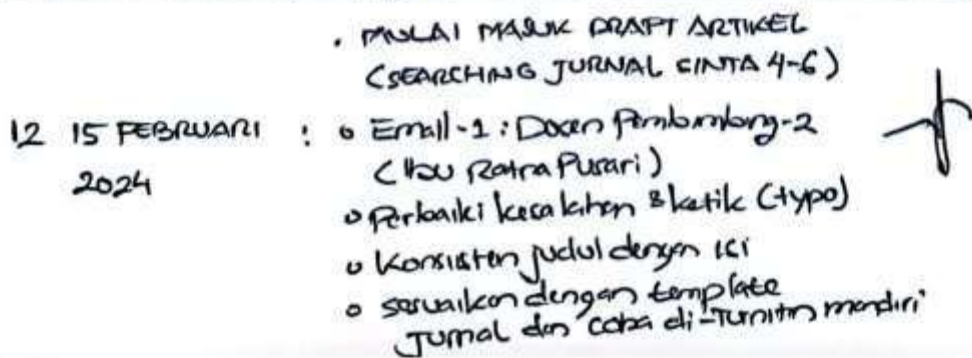 . MULAI MASUK DRAFT ARTIKEL
(SEARCHING JURNAL SINTA 4-6)
12 15 FEBRUARI : o Email-1 : Dosen Pembimbing-2
2024 (Ibu Ratna Pusari)
o Perbaiki kesalahan 2 ketik (typo)
o Konsisten judul dengan isi
o sesuaikan dengan template
Jurnal dan coba di-Turnitin mandiri